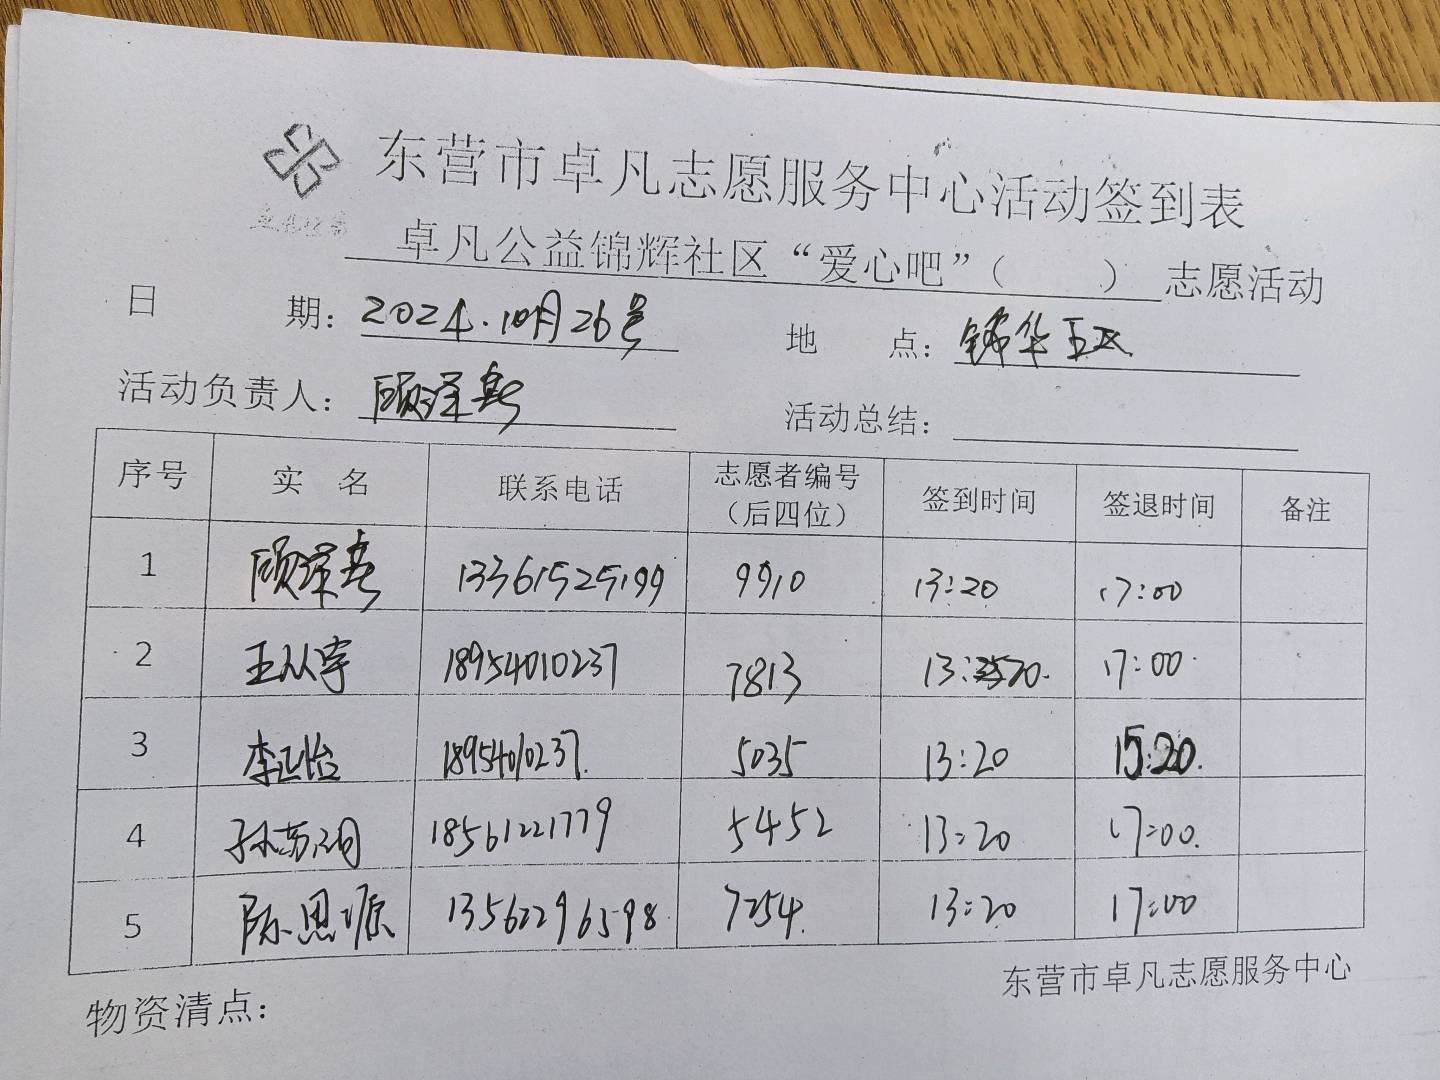 东营市卓凡志愿服务中心活动签到表
卓凡公益锦辉社区“爱心吧”（ ）志愿活动
日 期：2024.10月26号 地 点：锦华五区
活动负责人：顾泽 活动总结：
序号 实 名 联系电话 志愿者编号（后四位） 签到时间 签退时间 备注
1 顾泽 13361525199 9910 13:20 17:00
2 王从宇 18954010237 7813 13:20. 17:00
3 李正怡 18954010237. 5035 13:20 15:20.
4 孙 18561221779 5452 13:20 17:00.
5 陈思源 13562296598 7254 13:20 17:00
东营市卓凡志愿服务中心
物资清点：